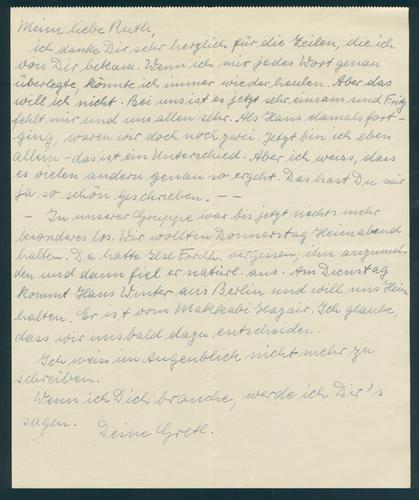 Meine liebe Ruth,
ich danke Dir sehr herzlich für die Zeilen, die ich
von Dir bekam. Wenn ich mir jedes Wort genau
überlegte, könnte ich immer wieder heulen. Aber das
will ich nicht. Bei uns ist es jetzt sehr einsam und Fritz
fehlt mir und uns allen sehr. Als Hans damals fort-
ging, waren wir doch noch zwei. Jetzt bin ich eben
allein - das ist ein Unterschied. Aber ich weiss, dass
es vielen andern genau so ergeht. Das hast Du mir
ja so schön geschrieben. - -
- In unserer Gruppe war bis jetzt nichts mehr
besonderes los. Wir wollten Donnerstag Heimabend
halten. Da hatte Else vergessen, ihn anzumel-
den und dann fiel er natürl. aus. Am Dienstag
kommt Hans Winter aus Berlin und will uns Heim
halten. Er ist vom Makkabi Hazair. Ich glaube,
dass wir uns bald dazu entscheiden.
Ich weiss im Augenblick nicht mehr zu
schreiben.
Wenn ich Dich brauche, werde ich Dir's
sagen.
Deine Gretl.